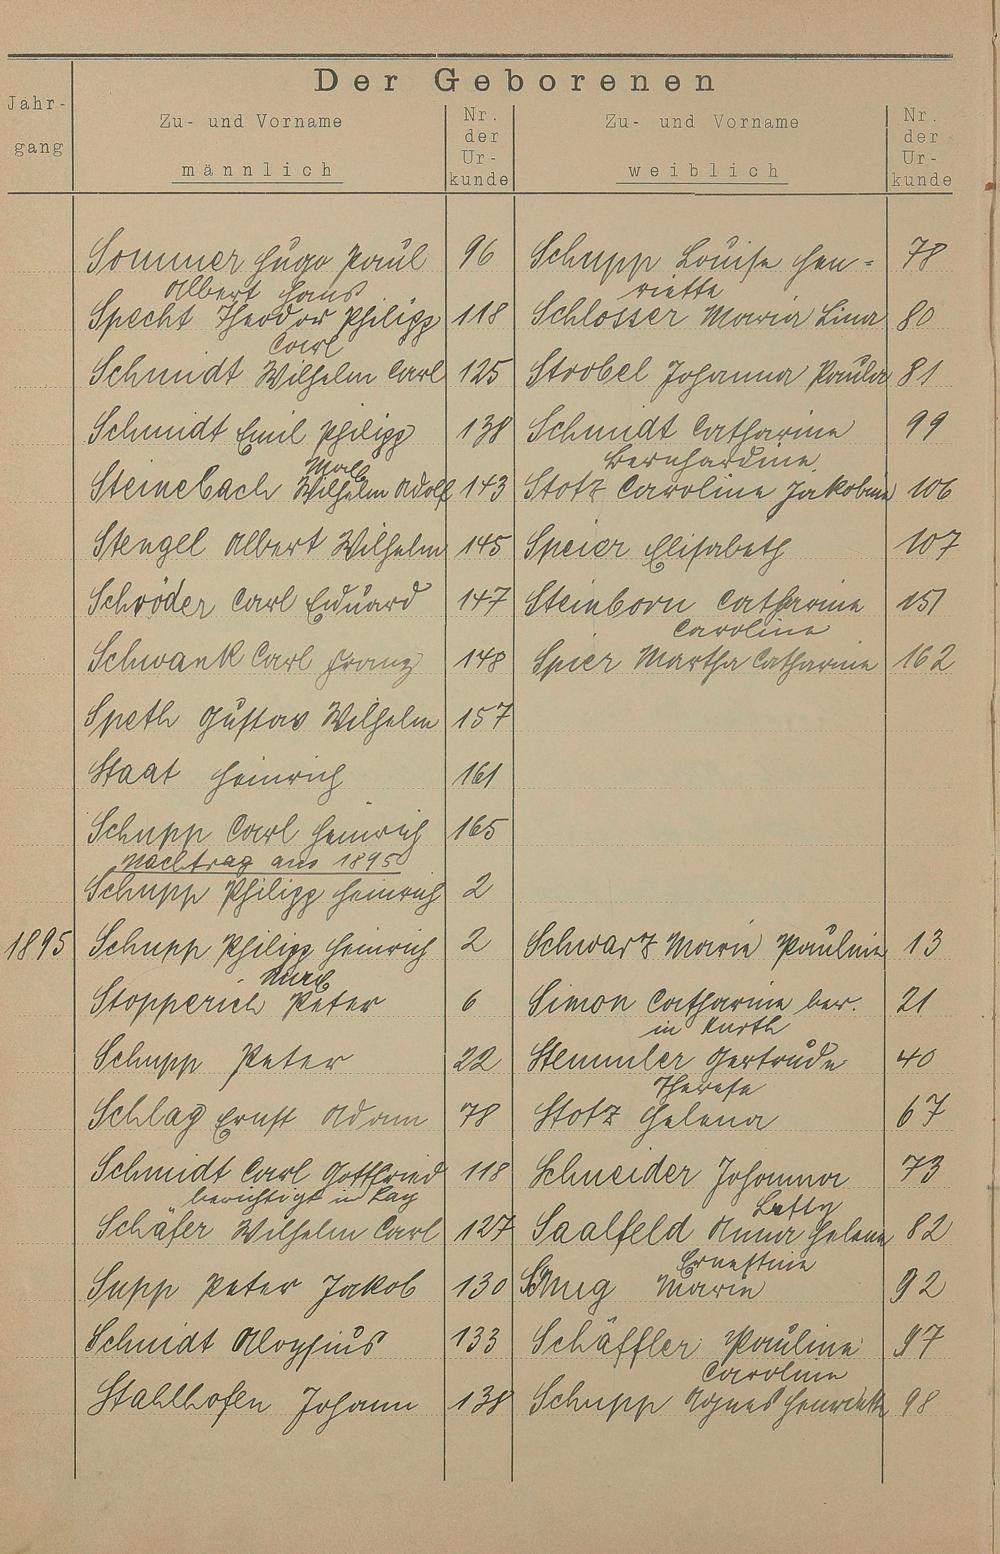 Der Geborenen
Jahr-
gang
Zu- und Vorname
männlich
Nr.
der
Ur-
kunde
Zu- und Vorname
weiblich
Nr.
der
Ur-
kunde
Sommer Hugo Paul 96 Schupp Louise Hen= 78
Albert Hans riette
Specht Theodor Philipp 118 Schlosser Maria Lina 80
Carl
Schmidt Wilhelm Carl 125 Strobel Johanna Paula 81
Schmidt Emil Philipp 138 Schmidt Catharine 99
Bernhardine
Steinebach Wilhelm Adolf 143 Stotz Caroline Jakobine 106
Stengel Albert Wilhelm 145 Speier Elisabeth 107
Schröder Carl Eduard 147 Steinborn Catharine 151
Caroline
Schwank Carl Franz 148 Spier Martha Catharine 162
Speth Gustav Wilhelm 157
Staat Heinrich 161
Schupp Carl Heinrich 165
Nachtrag aus 1895
Schupp Philipp Heinrich 2
1895 Schupp Philipp Heinrich 2 Schwarz Marie Pauline 13
Stopperich Peter 6 Simon Catharine ber. 21
in Kurth
Schupp Peter 22 Stemmler Gertrude 40
Therese
Schlag Ernst Adam 78 Stotz Helena 67
Schmidt Carl Gottfried 118 Schneider Johanna 73
berichtigt in Kay Betty
Schäfer Wilhelm Carl 127 Saalfeld Anna Helene 82
Ernestine
Supp Peter Jakob 130 Marie 92
Schmidt Aloysius 133 Schäffler Pauline 97
Caroline
Stahlhofen Johann 138 Schupp Agnes Henriette 98